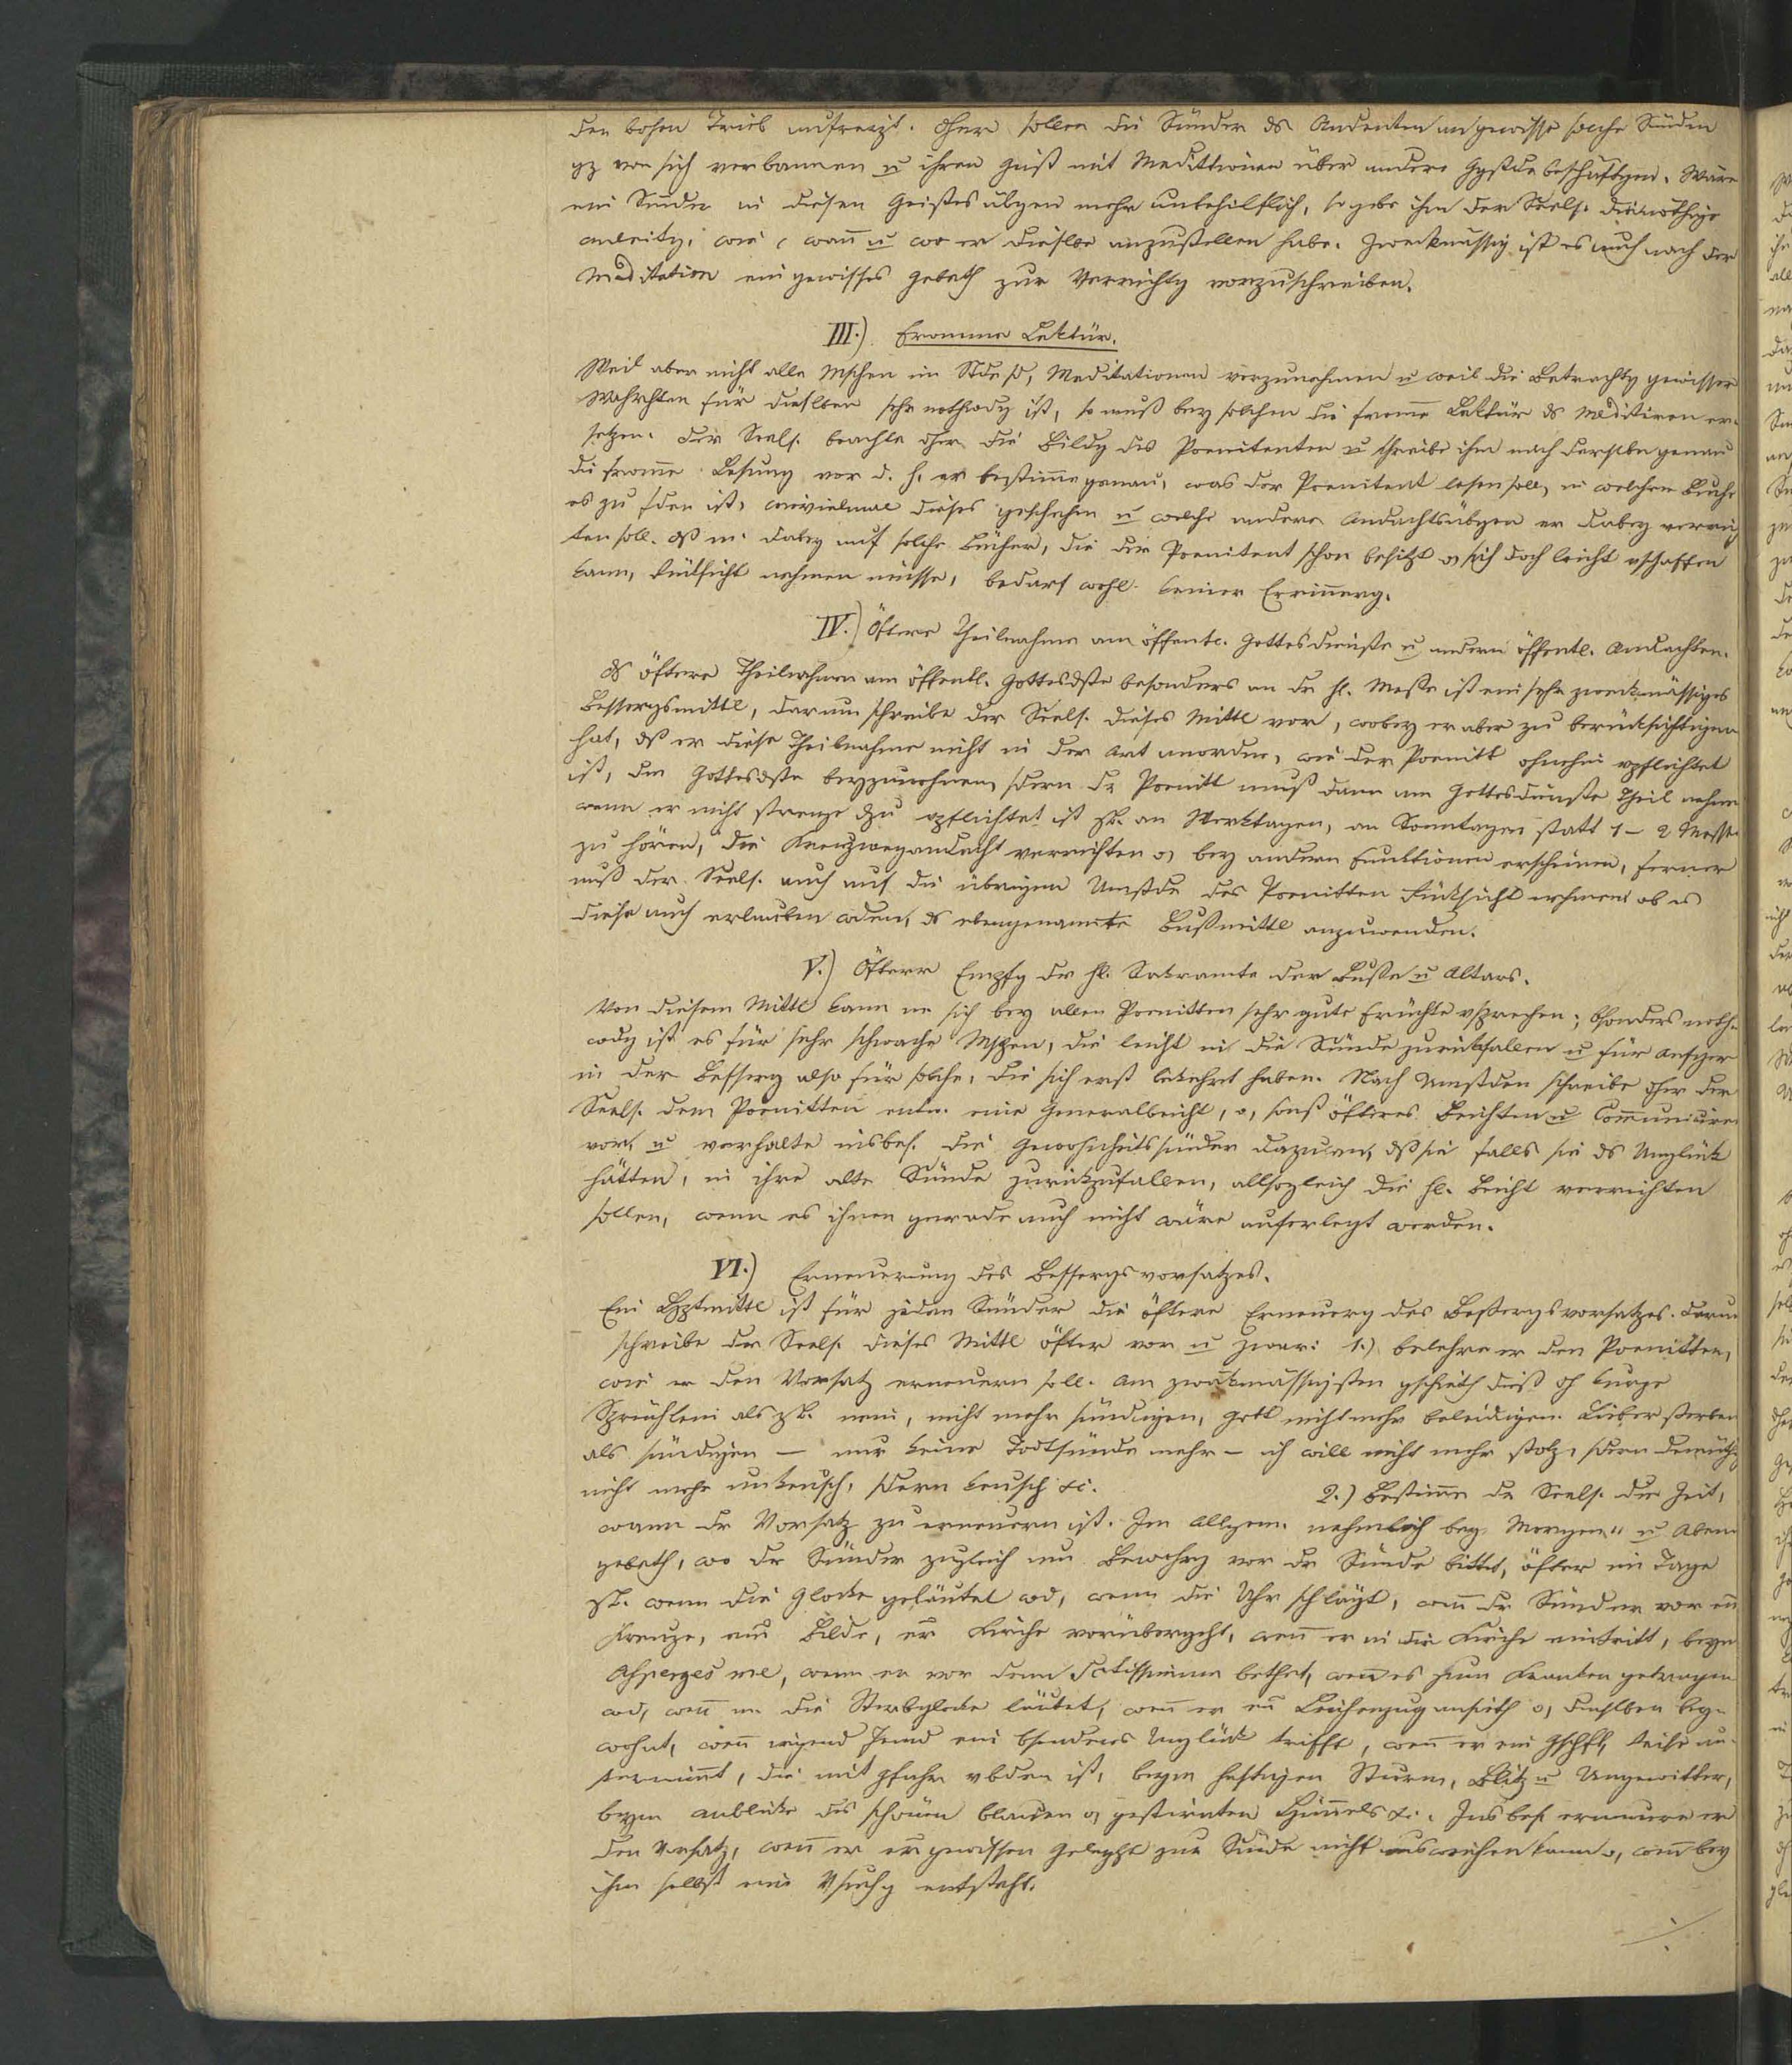 den bösen Trieb aufreizt. Dher sollen die Sünder ds Andenken an gewisse solche Sünden
gz von sich verbannen u ihren Geist mit Medittionen über andere Ggstde beschäftgen. Wäre
ein Sünder in diesen Geistesübgen mehr unbehilflich, so gebe ihm der Seels. die nöthige
Anleitg, wie, wañ u wo er dieselbe anzustellen habe. Zweckmässig ist es auch nach der
Meditation ein gewisses Gebeth zur Verrichtg vorzuschreiben.
III.) Fromme Lektür.
Weil aber nicht alle Mschen im Stde sd, Meditationen vorzunehmen u weil die Betrachtg gewisser
Wahrhten für dieselben sehr nothwdg ist, so muß bey solchen die from̄e Lektür ds Meditiren er-
setzen. Der Seels. beachte dher die Bildg des Poenitenten u schreibe ihm nach derselben genau
die from̄e Lesung vor d. h. er bestim̄e genau, was der Poenitent lesen soll, in welchem Buche
es zu fden ist, wievielmal dieses geschehen u welche andere Andachtsübgen er dabey verrich
ten soll. Dß m. dabey auf solche Bücher, die der Poenitent schon besitzt o, sich doch leicht vschaffen
kann, Rücksicht nehmen müsse, bedarf wohl keiner Erinnerg.
IV.) Öftere Theilnahme am öffentl. Gottesdienste u andern öffentl. Andachten.
Ds öftere Theilnehmen am öffentl. Gottesdste besonders an dr hl. Messe ist ein sehr zweckmässiges
Bessergsmittl, darum schreibe der Seels. dieses Mittl vor, wobey er aber zu berücksichtigen
hat, dß er diese Theilnahme nicht in der Art anordne, wie der Poenitt ohnehin vpflichtet
ist, dem Gottesdste beyzuwohnen, sdern dr Poenitt muß dann am Gottesdienste Theil nehmen
wenn er nicht strenge dzu vpflichtet ist zB. an Werktagen, an Sonntagen statt 1 - 2 Messen
zu hören, die Kreuzwegandacht verrichten o, bey andern Funktionen erscheinen, ferner
muß der Seels. auch auf die übrigen Umstde des Poenitten Rücksicht nehmen ob es
diese auch erlauben wden, ds ebengenannte Bußmittl anzuwenden.
V.) Öfterer Empfg der hl. Sakramte der Buße u Altars.
Von diesem Mittl kann m sich bey allen Poenitten sehr gute Früchte vsprechen; bsonders noth-
wdg ist es für sehr schwache Mschen, die leicht in die Sünde zurückfallen u für Anfger
in der Besserg also für solche, die sich erst bekehrt haben. Nach Umstden schreibe dher der
Seels. dem Poenitten entw. eine Generalbeicht, o, sonst öfteres Beichten u Com̄uniciren
vor, u verhalte insbes. die Gewohnheitssünder dazu an, dß sie falls sie ds Unglück
hätten, in ihre alte Sünde zurückzufallen, allsogleich die hl. Beicht verrichten
sollen, wenn es ihnen gerade auch nicht wäre auferlegt worden.
VI.) Erneuerung des Bessergsvorsatzes.
Ein Hptmittl ist für jeden Sünder die öftere Erneuerg des Beßergsvorsatzes. Darum
schreibe der Seels. dieses Mittl öfter vor u zwar: 1.) belehre er den Poenitten,
wie er den Vorsatz erneuern soll. Am zweckmässigsten gschieth dieß dh kurze
Sprüchlein als zB. nein, nicht mehr sündigen, Gott nicht mehr beleidigen. Lieber sterben
als sündigen — nur keine Todtsünde mehr — ich will nicht mehr stolz, sdern demüthg
nicht mehr unkeusch, sdern keusch &c. 2.) Bestim̄e der Seels. die Zeit,
wann dr Vorsatz zu erneuern ist. Im Allgem. nehmlich bey Morgen- u Abend
gebeth, wo dr Sünder zugleich um Bewahrg vor dr Sünde bittet, öfter im Tage
zB. wenn die Glocke geläutet wd, wenn die Uhr schlägt, weñ dr Sünder vor eim
Kreuze, eim Bilde, er Kirche vorübergeht, weñ er in die Kirche eintritt, beym
Asperges me, wenn er vor dem Sctissimum bethet, weñ es zum Kranken getragen
wd, weñ m. die Sterbglocke läutet, weñ er en Leichenzug ansieth o, demselben bey-
wohnt, weñ irgend Jemd ein bsonderes Unglück trifft, weñ er ein Gschft, Reise un-
ternim̄t, die mit Gfahr vbden ist, beym heftigen Sturm, Blitz u Ungewitter,
beym Anblicke des schönen blauen o, gestirnten Him̄els &c. Insbes. erneuere er
den Vorsatz, weñ er er gewissen Geleght zur Sünde nicht ausweichen kann o, weñ bey
ihm selbst eine Vsuchg entsteht.